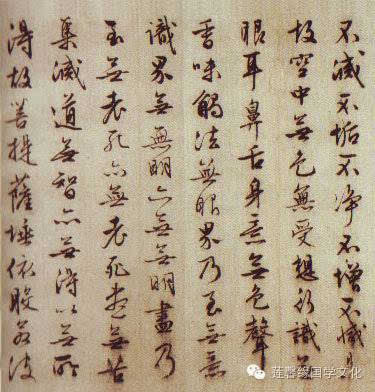 不滅不垢不净不增不減是
故空中無色無受想行識無
眼耳鼻舌身意無色聲
香味觸法無眼界乃至無意
識界無無明亦無無明盡乃
至無老死亦無老死盡無苦
集滅道無智亦無得以無所
得故菩提薩埵依般若波
莲馨缘国学文化